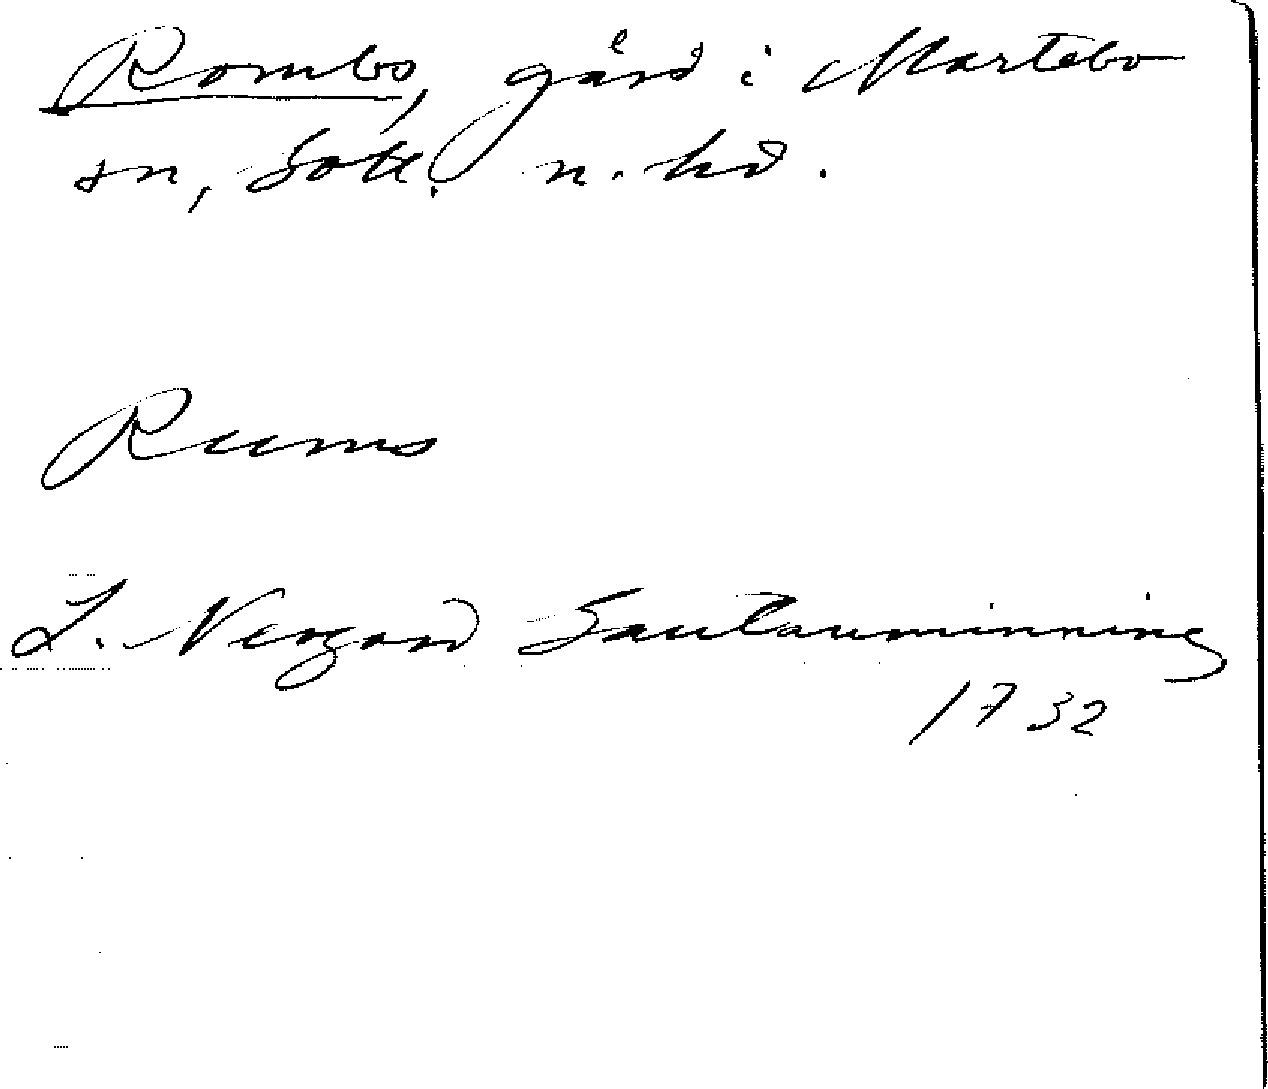 Rombo, gård i Martebo
sn, Gotl. n. hd.
Rums
L. Neogard Gautauminning
1732